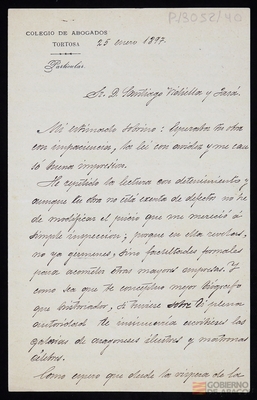 P/3052/40
COLEGIO DE ABOGADOS
TORTOSA
25 enero 1897.
Particular
Sr. D. Santiago Vidiella y Jasá.
Mi estimado sobrino: Esperaba tu obra
con impaciencia, la leí con avidez y me cau
só buena impresion.
He repetido la lectura con detenimiento y
aunque tu obra no está exenta de defectos no he
de modificar el juicio que me mereció á
simple inspeccion; porque en ella revelas,
no ya germenes, sino facultades formales
para acometer otras mayores empresas. Y
como sea que te conceptuo mejor biografo
que historiador, si tuviese sobre tí plena
autoridad te insinuaría escribieses las
galerias de aragoneses ilustres y matronas
célebres.
Como espero que desde la vispera de la
GOBIERNO
DE ARAGON